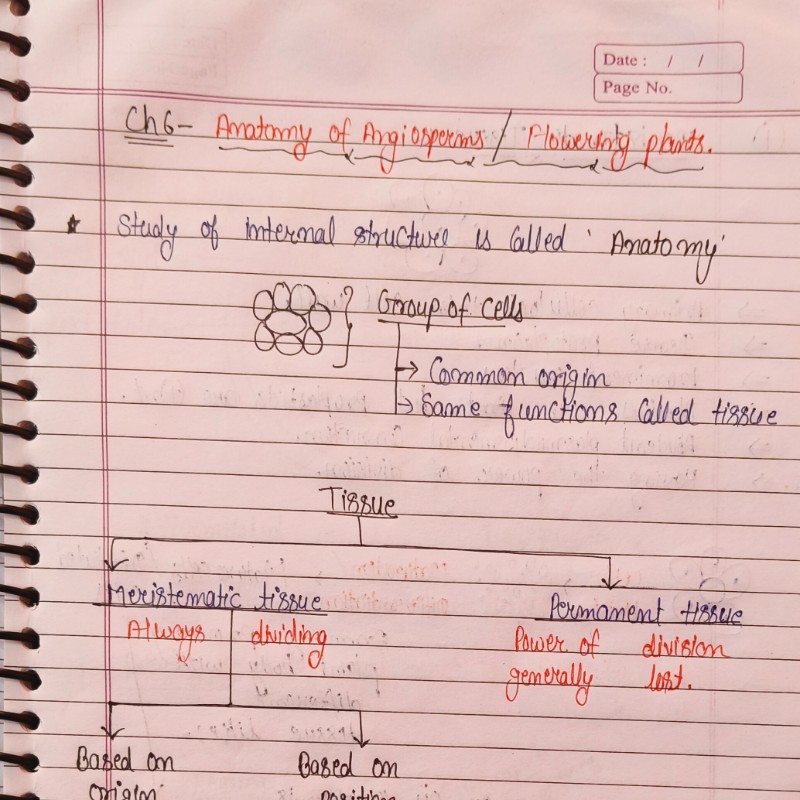 Date : / /
Page No.
Ch 6- Anatomy of Angiosperms / Flowering plants.
* Study of internal structure is Called 'Anatomy'
Group of cells
→ Common origin
→ Same functions Called tissue
Tissue
Meristematic tissue
Permanent tissue
Always dividing
Power of division
generally lost.
Based on
origin
Based on
position